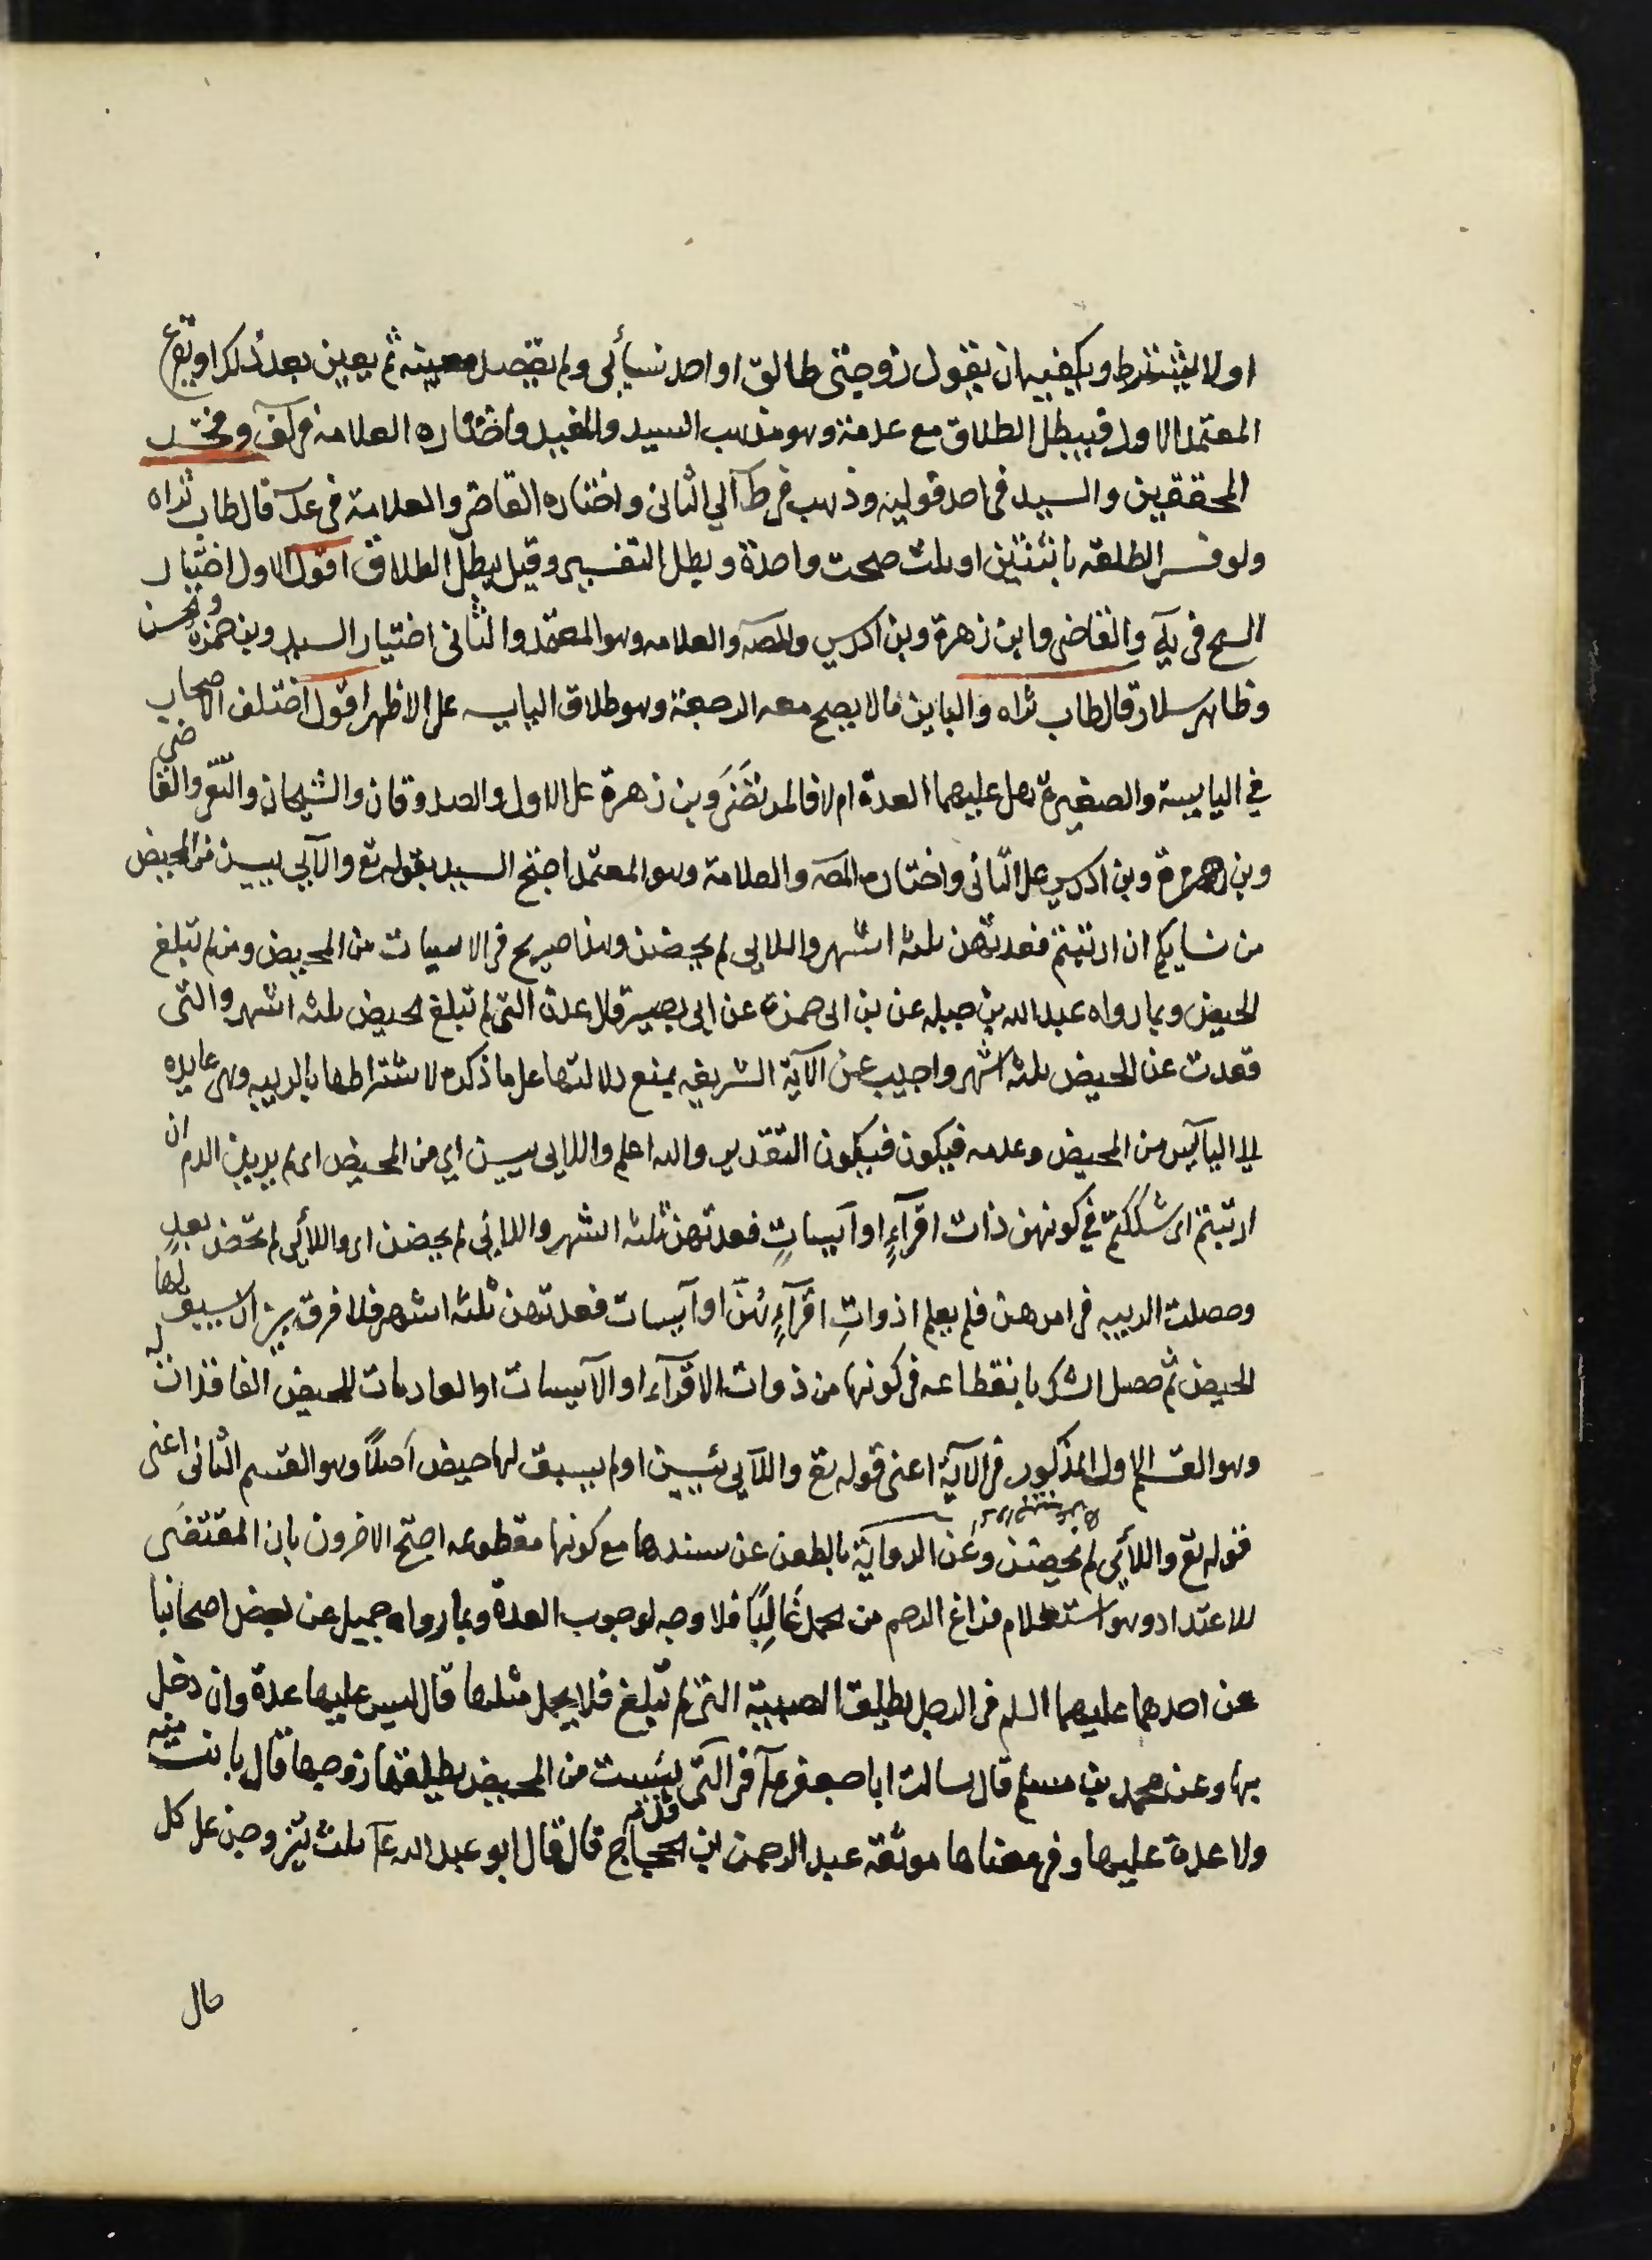 او لا يشترط ويكفيه ان يقول زوجتى طالق او احد نسائى ولم يقصد معينه ثم يعين بعد ذلك او يقرع
المعتمد الاول فيبطل الطلاق مع عدمة وهو مذهب السيد والمفيد واختاره العلامه فى
المحققين والسيد فى احد قوليه وذهب فى ط الي الثانى واختاره القاضى والعلامة فى عد قال طاب ثراه
ولو فسر الطلقه باثنتين او ثلث صحت واحدة وبطل التفسير وقيل يبطل الطلاق اقول الاول اختيار
الشيخ فى يه والقاضى وابن زهرة وبن ادريس والمصه والعلامه وهو المعتمد والثانى اختيار السيد وبن حمزه والحسن
وظاهر سلار قال طاب ثراه والباين ما لا يصح معه الرجعة وهو طلاق اليايسه على الاظهر اقول اختلف الاصحاب
في اليايسة والصغيرة هل عليهما العدة ام لا فالمرتضى وبن زهرة على الاول والصدوقان والشيخان والتقى والقاضى
وبن حمزة وبن ادريس على الثانى واختاره المصه والعلامة وهو المعتمد احتج السيد بقوله تع واللآئي يئسن من المحيض
من نسايكم ان ارتبتم فعدتهن ثلثه اشهر واللايى لم يحضن وهذا صريح فى الايسات من المحيض ومن لم تبلغ
الحيض وبما رواه عبد الله بن جبله عن بن ابى حمزة عن ابي بصير قال عدة التى لم تبلغ لحيض ثلثه اشهر والتى
قعدت عن الحيض ثلثه اشهر واجيب عن الآية الشريفه بمنع دلالتها على ما ذكره لاشتراطها بالريبه وهى عايده
الى اليآيس من المحيض وعدمه فيكون فيكون التقدير والله اعلم واللايى يئسن اي من المحيض اى لم يرين الدم ان
ارتبتم اى شككتم في كونهن ذات اقرآءٍ او آيساتٍ فعدتهن ثلثه اشهر واللايى لم يحضن اى واللائى لم تحض بعد
وحصلت الريبه فى امرهن فلم يعلم اذوات اقرآءٍ هنّ او آيسات فعدتهن ثلثه اشهر فلا فرق بين ان يسبق لها
الحيض ثم حصل الشك بانقطاعه فى كونها من ذوات الاقرآء او الآيسات او العادمات للحيض
وهو القسم الاول المذكور فى الآية اعنى قوله تع واللآيى يئسن او لم يسبق لها حيض اصلًا وهو القسم الثانى اعنى
قوله تع واللائى لم يحضن وعن الرواية بالطعن عن سندها مع كونها مقطوعه احتج الاخرون بان المقتضى
للاعتداد وهو استعلام فراغ الرحم من الحمل غالبًا فلا وجه لوجوب العدة وبما رواه جميل عن بعض اصحابنا
عن احدهما عليهما السلم فى الرجل يطليق الصبية التى لم تبلغ فلا يحمل مثلها قال ليس عليها عدة وان دخل
بها وعن محمد بن مسلم قال سالت ابا جعفر عآ فى التى يئست من المحيض يطليقها زوجها قال بانت منه
ولا عدة عليها وفى معناها موثقة عبد الرحمن ابن الحجاج قال قال ابو عبد الله عآ ثلث يتزوجن على كل
حال